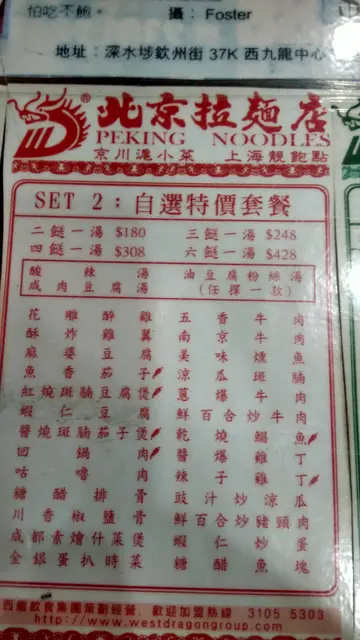 怕吃不飽。
攝： Foster
地址：深水埗欽州街 37K 西九龍中心
北京拉麵店
PEKING NOODLES
京川滬小菜 上海靚飽點
SET 2：自選特價套餐
二餸一湯 $180 三餸一湯 $248
四餸一湯 $308 六餸一湯 $428
酸辣湯 油豆腐粉絲湯
咸肉豆腐湯 (任擇一款)
花雕醉雞 五香牛肉
酥炸雞翼 南京牛肉
麻婆豆腐 美味燻魚
魚香茄子 涼瓜斑腩
紅燒斑腩豆腐煲 蔥爆牛肉
蝦仁豆腐 鮮百合炒牛肉
醬燒斑腩茄子煲 乾燒鯧魚
回鍋肉 醬爆雞丁
咕嚕肉 辣子雞丁
糖醋排骨 豉汁炒涼瓜
川香椒鹽骨 鮮百合炒豬頸肉
成都素燴什菜煲 蝦仁炒蛋
金銀蛋扒時菜 糖醋魚塊
西龍飲食集團策劃經營，歡迎加盟熱線 3105 5303
http://www.westdragongroup.com/